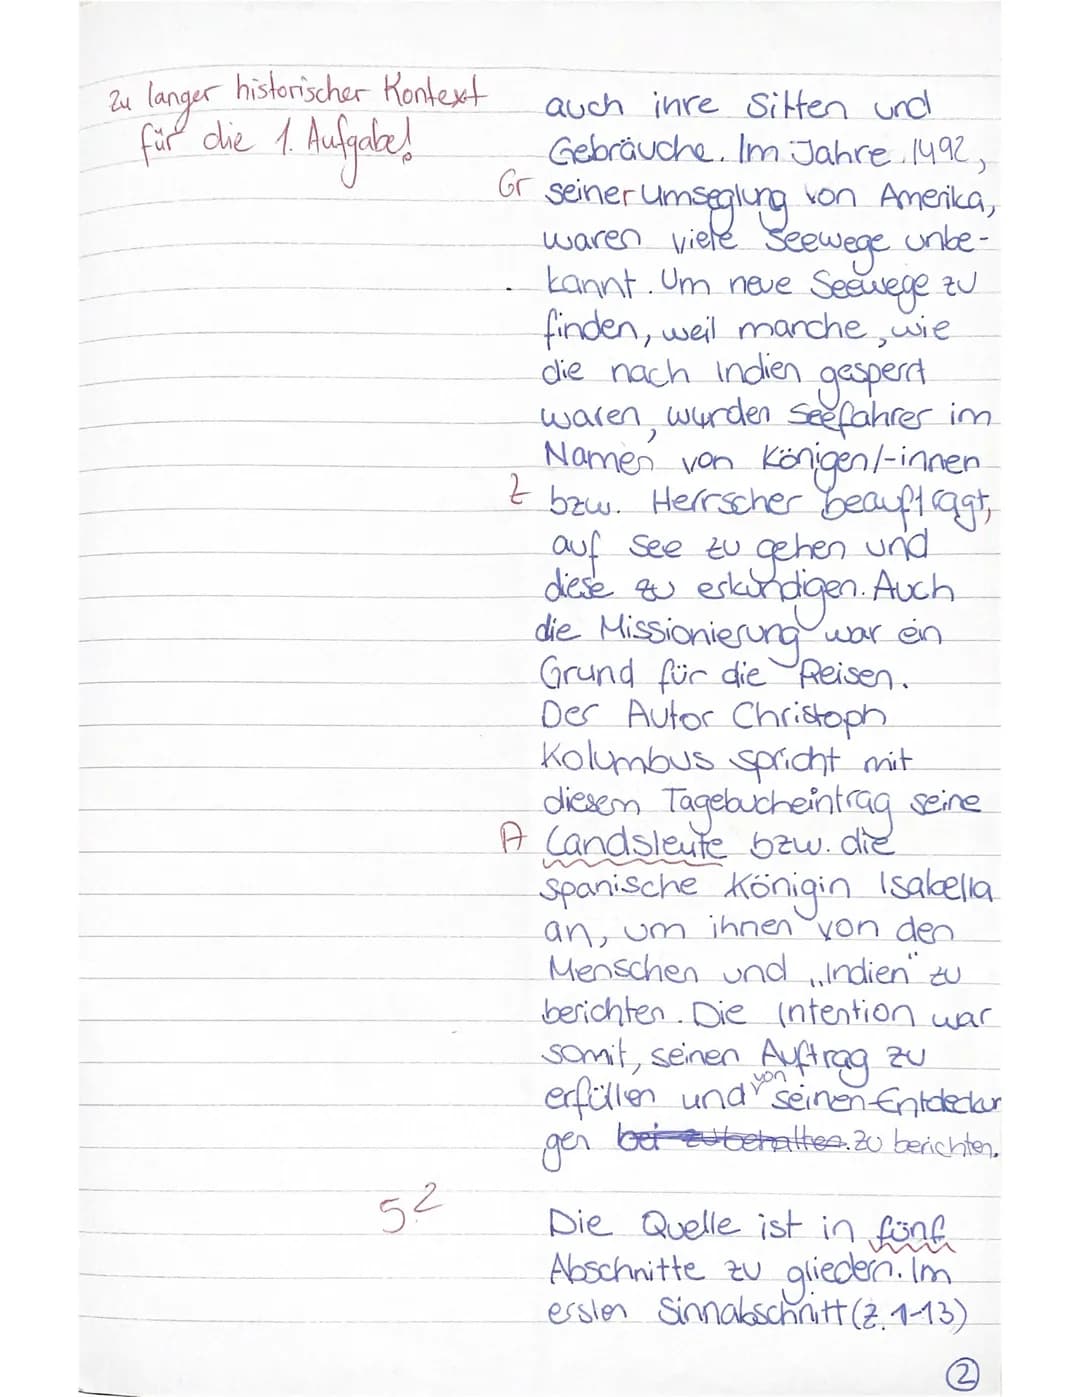 zu langer historischer Kontext
für die 1. Aufgabe!
auch ihre Sitten und
Gebräuche. Im Jahre 1492,
Gr seiner Umseglung von Amerika,
waren viele Seewege unbe-
kannt. Um neue Seewege zu
finden, weil manche, wie
die nach Indien gesperrt
waren, wurden Seefahrer im
Namen von Königen/-innen
Z bzw. Herrscher beauftragt,
auf See zu gehen und
diese zu erkundigen. Auch
die Missionierung war ein
Grund für die Reisen.
Der Autor Christoph
Kolumbus spricht mit
diesem Tagebucheintrag seine
A Landsleute bzw. die
spanische Königin Isabella
an, um ihnen von den
Menschen und „Indien" zu
berichten. Die Intention war
somit, seinen Auftrag zu
erfüllen und von seinen Entdeckun
gen bei zu behalten. zu berichten.
5?
Die Quelle ist in fünf
Abschnitte zu gliedern. Im
ersten Sinnabschnitt (Z. 1-13)
2